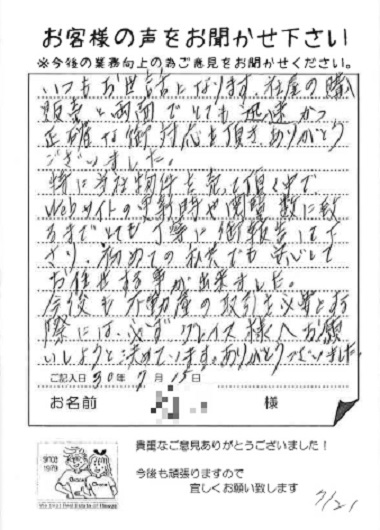 お客様の声をお聞かせ下さい
※今後の業務向上の為ご意見をお聞かせください。
いつもお世話になります。社屋の購入
販売と両面でとても迅速かつ
正確な御対応を頂き、ありがとう
ございました。
特に当社物件を売って頂く中で
Webサイトの更新時や閲覧数に致
るまでとても丁寧に御報告して下
さり、初めての私共でも安心して
お任せする事が出来ました。
今後も不動産の取引を必要とする
際には、必ずグレイス様へお願
いしようと決めています。ありがとうございました。
ご記入日 30年7月15日
お名前 様
SINCE
1979
貴重なご意見ありがとうございました！
今後も頑張りますので
宜しくお願い致します
7/21